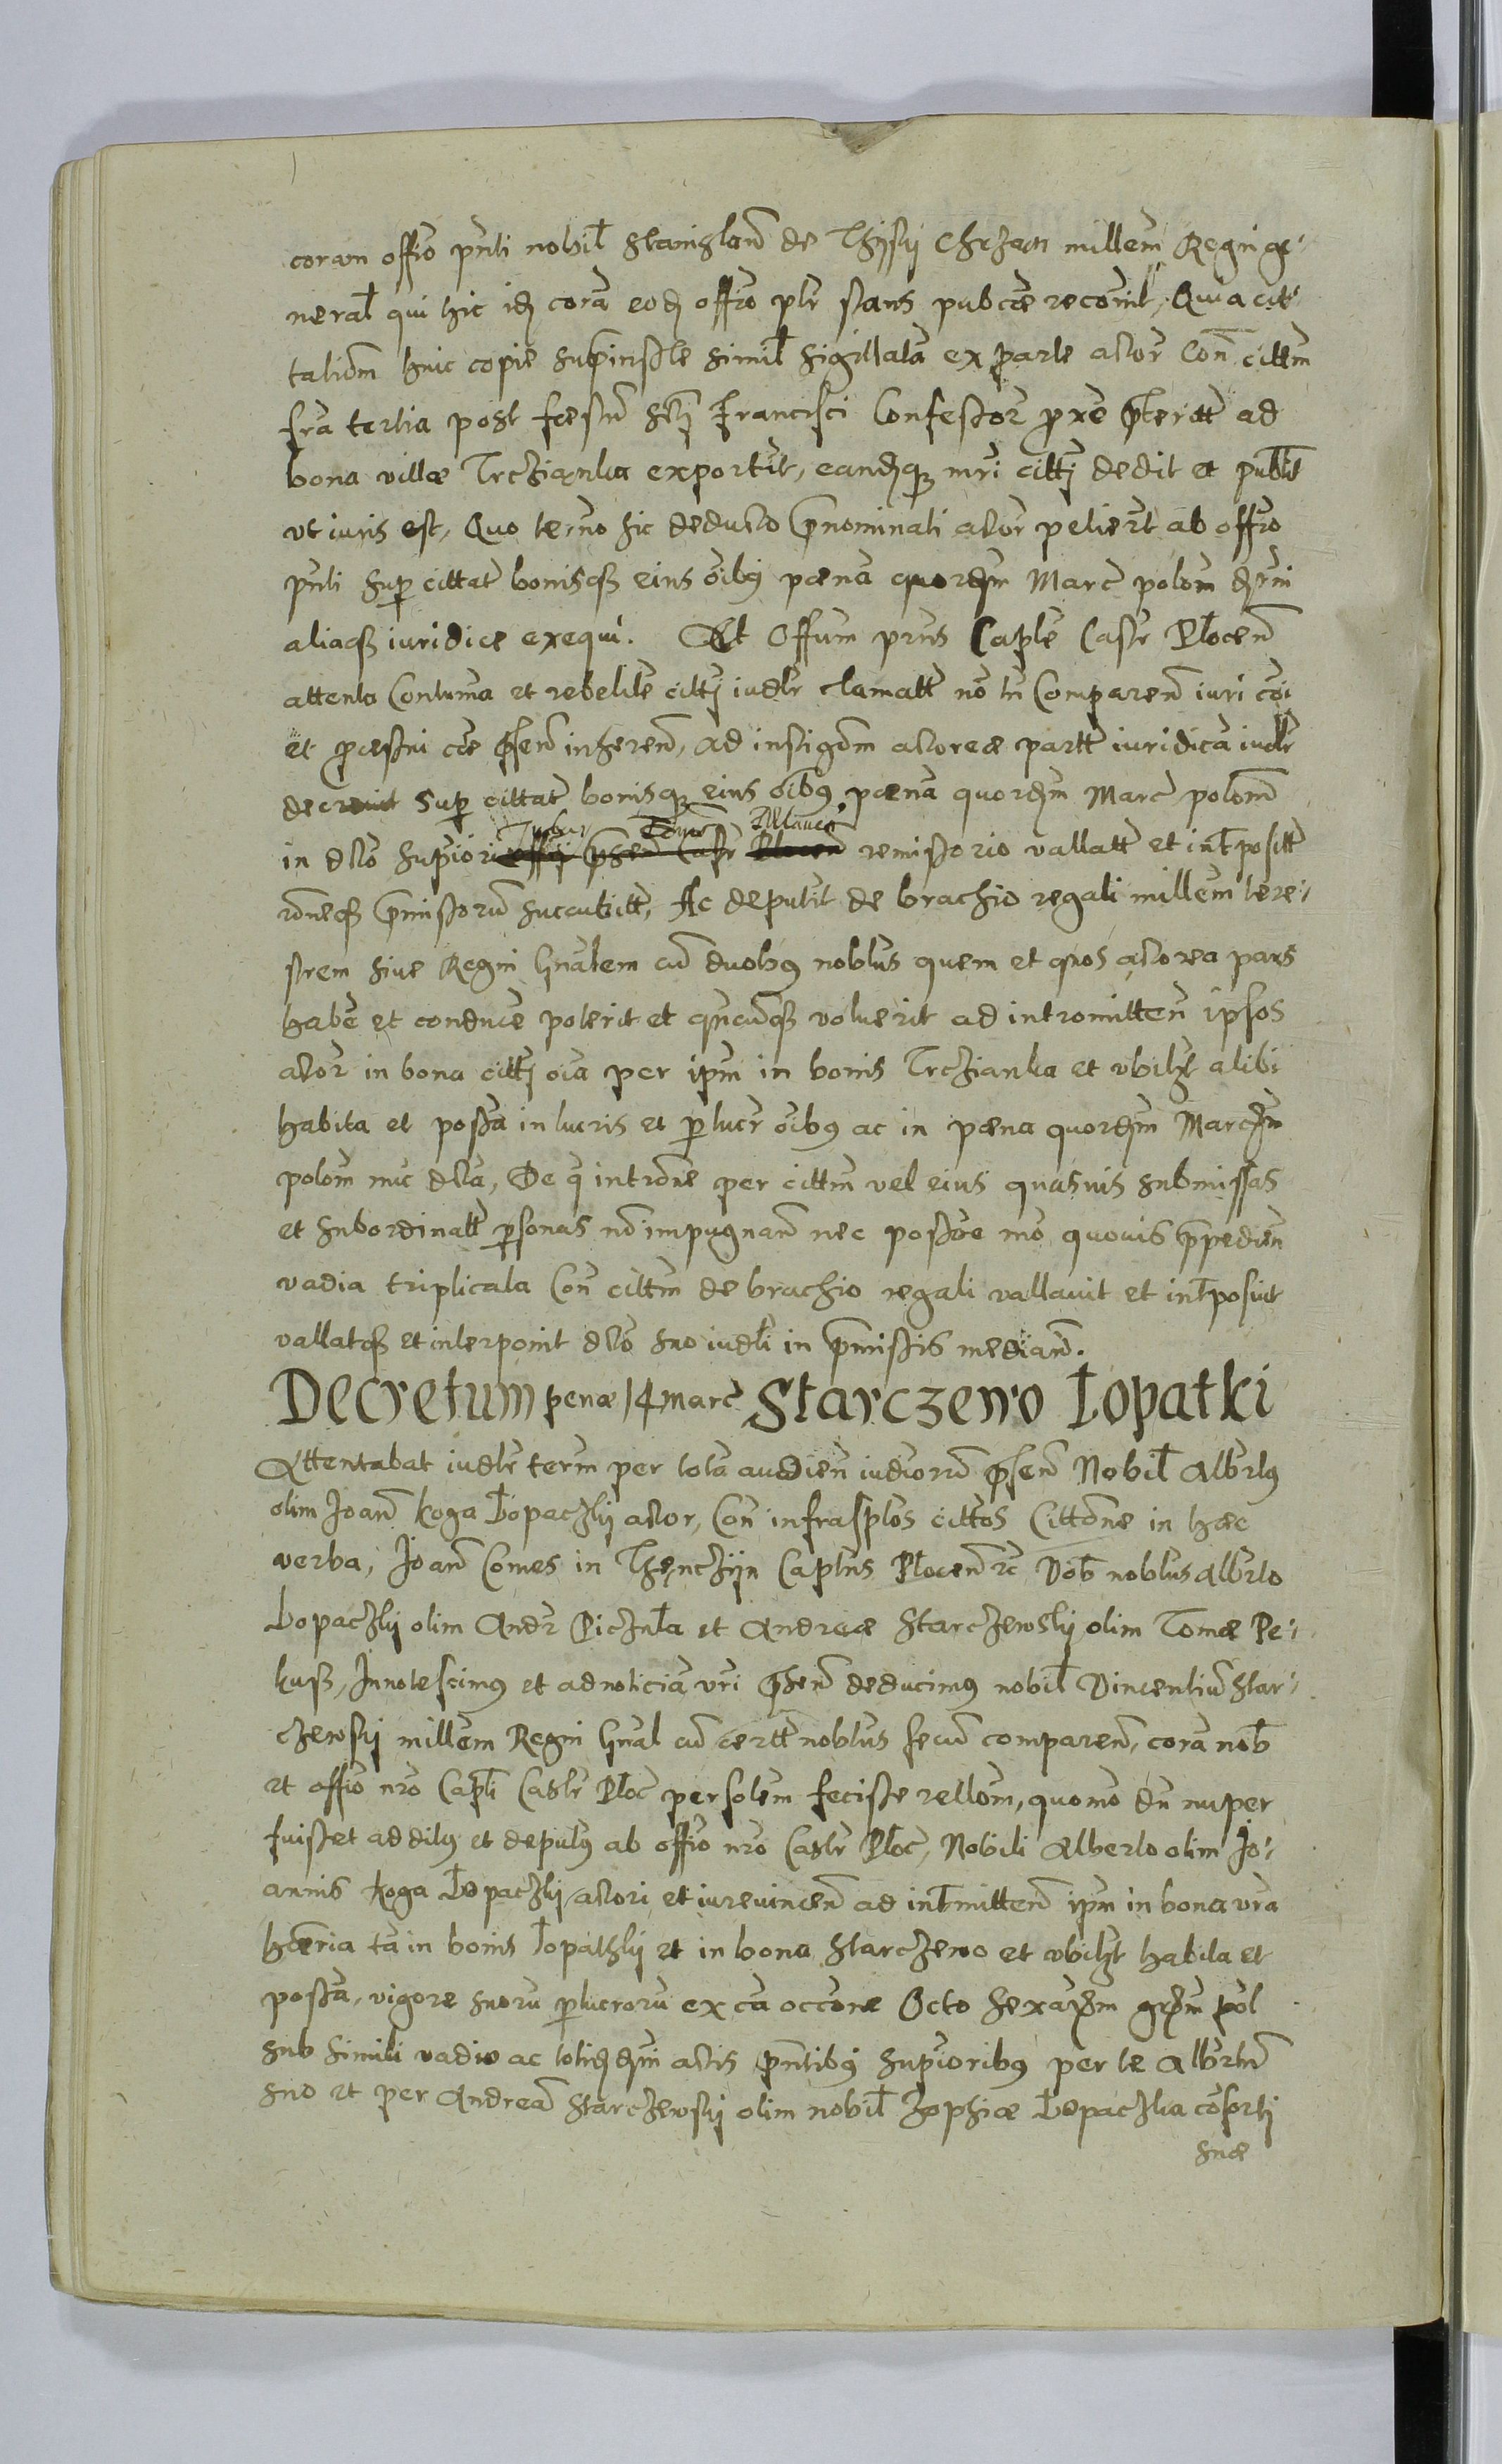 coram offio pnti nobil Stanislau de Thÿsÿ Chrzan millem Regni ge-
neral qui hic idz cora eodz offio plr stans pubce recouit, Qui a cit-
tationm huic copie supinste simil sigillata ex parte actor Con cittm
fra tertia post festu scti Francisci Confessor pxe pterit ad
bona villæ Trczianka exportuit, eandzqz mri cittj dedit et publit
vt iuris est, Quo termo sic deducto pnominati actor petiert ab offio
pnti sup cittat bonisqz eius oibus pæna quordzm Marc polom
aliaqz iuridice exequi. Et Offium prns Caple Castr Plocen
attenta Contuma et rebelite cittj iudlr clamatt no tn Comparen iuri coi
et pcessui cæ psen inheren, ad instigonm actoreæ partt iuridica iudlr
decreuit sup cittat bonisqz eius oibus pæna quordzm Marc polom
in dcto supiori offij psen Castr Plocen remissorio vallatt et intpositt
roneqz pmissoru succubitt, Ac deputit de brachio regali millem tere-
strem siue Regni Gnalem cu duobus noblus quem et quos actorea pars
habe et conduce poterit et quncuqz voluerit ad intromitten ipsos
actor in bona cittj oia per ipm in bonis Trczianka et vbilzt alibi
habita et possa in lucris et plucr oibus ac in pæna quordzm Marcdzm
polom nuc dcta, De q introne per cittm vel eius quasuis submissas
et subordinatt psonas no impugnan nec postoe mo quouis ppedien
vadia triplicata Con cittm de brachio regali vallauit et intposuit
vallatqz et interponit dcto suo iudli in pmissis median.
Decretum penæ 14 marc Starczewo Lopatki
Attentabat iudlr term per tota audien iudiorum psen Nobil Albrtus
olim Joan Koga Łopaczkÿ actor, Con infrasptos cittos Cittone in hæc
verba, Joan Comes in Thęnczÿn Captns Plocen rc Vob noblus Albrto
Łopaczkÿ olim Andr Piczula et Andreæ Starczewskÿ olim Tomæ Pe-
kusz, Innotescimus et ad noticia vri psen deducimus nobil Vincentiu Star-
czewskÿ millem Regni Gnal cu certt noblus secu comparen, cora nob
et offio nro Capli Castr Ploc personlem fecisse rellonm, quomo du nuper
fuisset additus et deputus ab offio nro Castr Ploc, Nobili Alberto olim Jo-
annis Koga Łopaczkÿ actori et iureuincen ad intmitten ipm in bona vra
hæria ta in bonis Łopathkÿ et in bona Starczewo et vbilzt habita et
possa, vigore suoru plucroru ex ca occone Octo sexagdzm grdzm pol
sub simili vadio ac totidz actis pntibus supioribus per te Albrtu
suo et per Andrea Starczewskÿ olim nobil Zophiæ Łopaczka cosorti
suæ